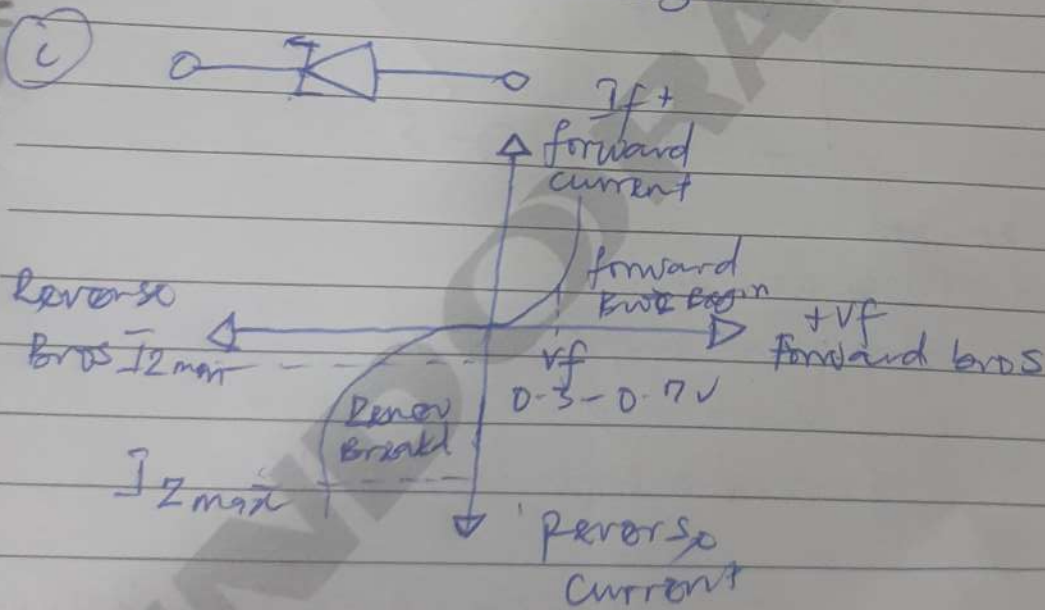 i
If +
forward
current
forward
Reverse
Bias Izmin
+Vf
Forward bias
Vf
0.3 - 0.7V
Zener
Breakd
Izmax
Reverse
Current